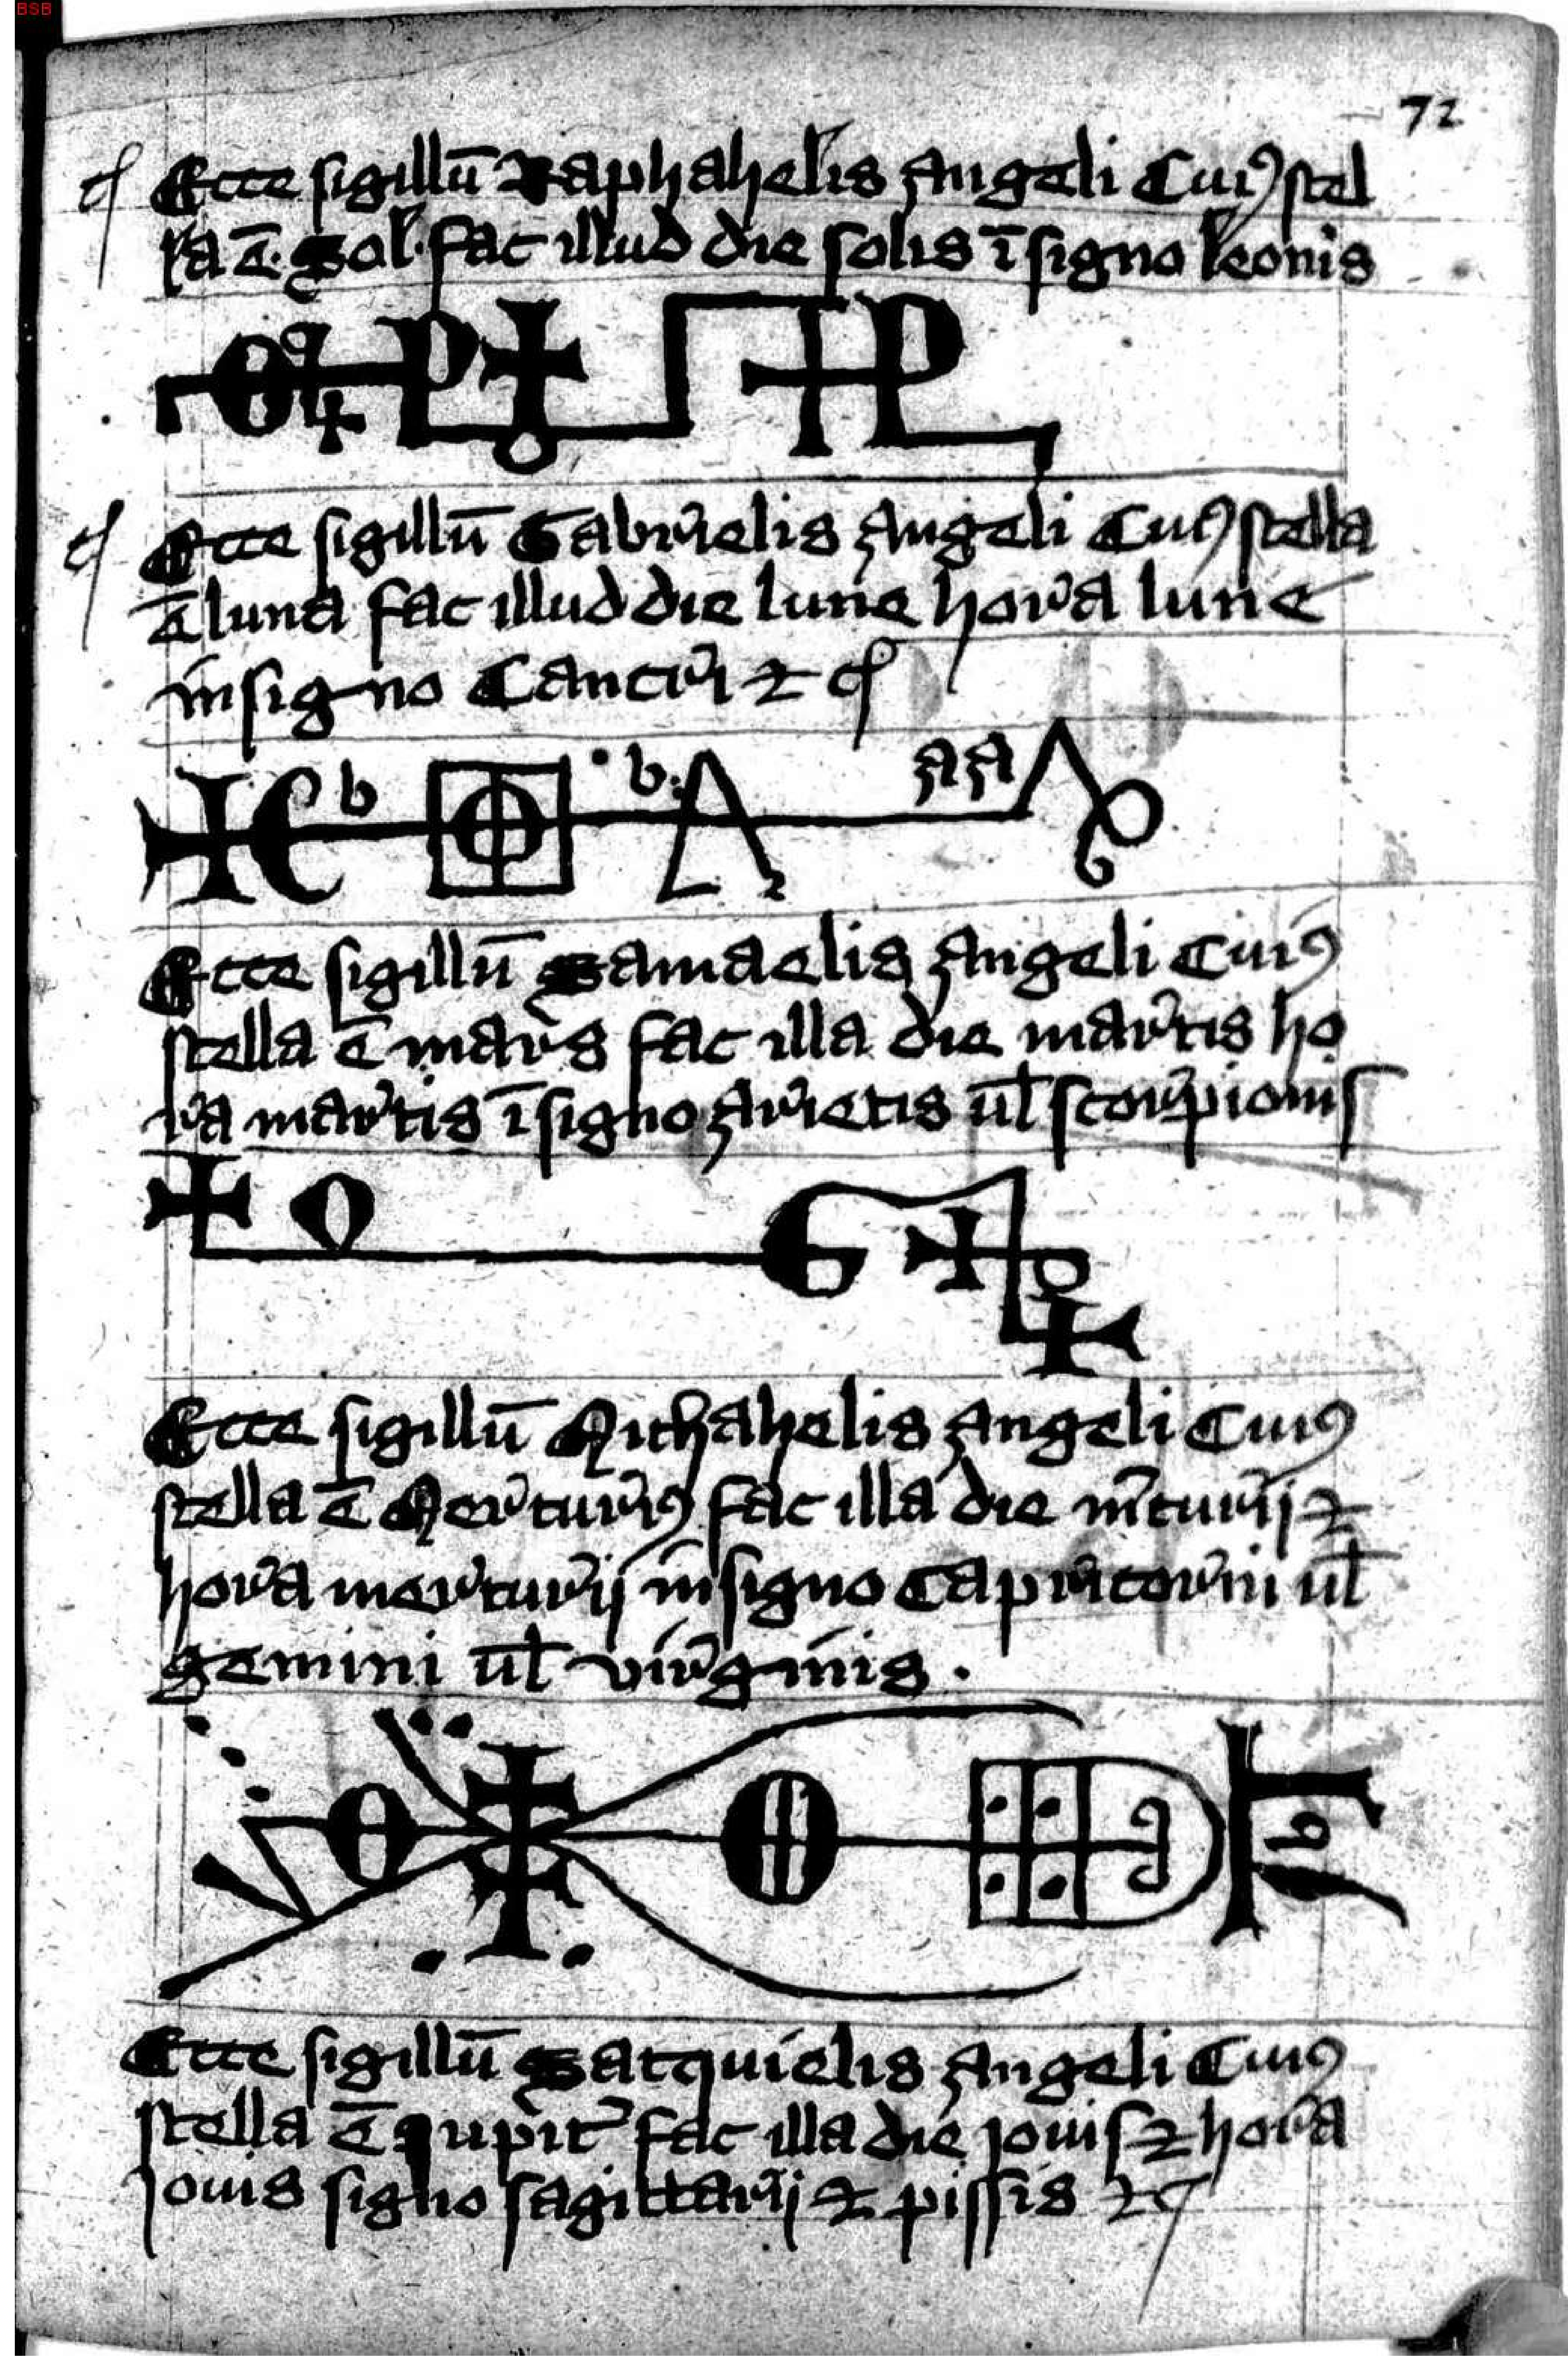 BSB
72
Ecce sigillū Raphahelis Angeli Cuiꝰ stel
la ē. Sol. fac illud die solis ī signo leonis
Ecce sigillū Gabrielis Angeli Cuiꝰ stella
ē luna fac illud die lune hora lune
in signo Cancri ⁊ cͦ
b b. a a
Ecce sigillū Samaelis Angeli Cuiꝰ
stella ē mars fac illa die martis ho
ra martis ī signo Arietis ul̄ scorpionis
G
Ecce sigillū Michahelis Angeli Cuiꝰ
stella ē Mercuriꝰ fac illa die m̄curij ⁊
hora mercurij in signo Capricorni ul̄
gemini ul̄ virginis.
Ecce sigillū Satquielis Angeli Cuiꝰ
stella ē Jupit᷑ fac illa die jouis ⁊ hora
Jouis signo sagittarij ⁊ pissis ⁊c